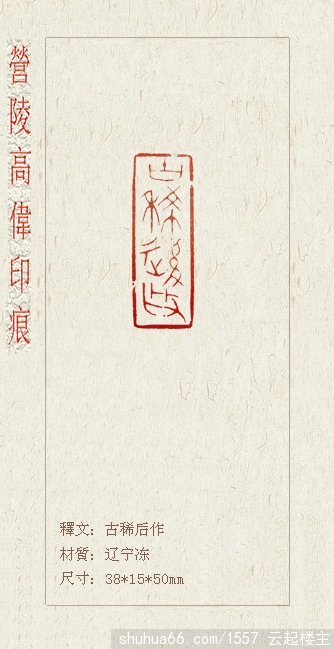 營陵高偉印痕
古稀後作
釋文：古稀后作
材質：辽宁冻
尺寸：38*15*50mm
shuhua66.com/1557 云起楼主